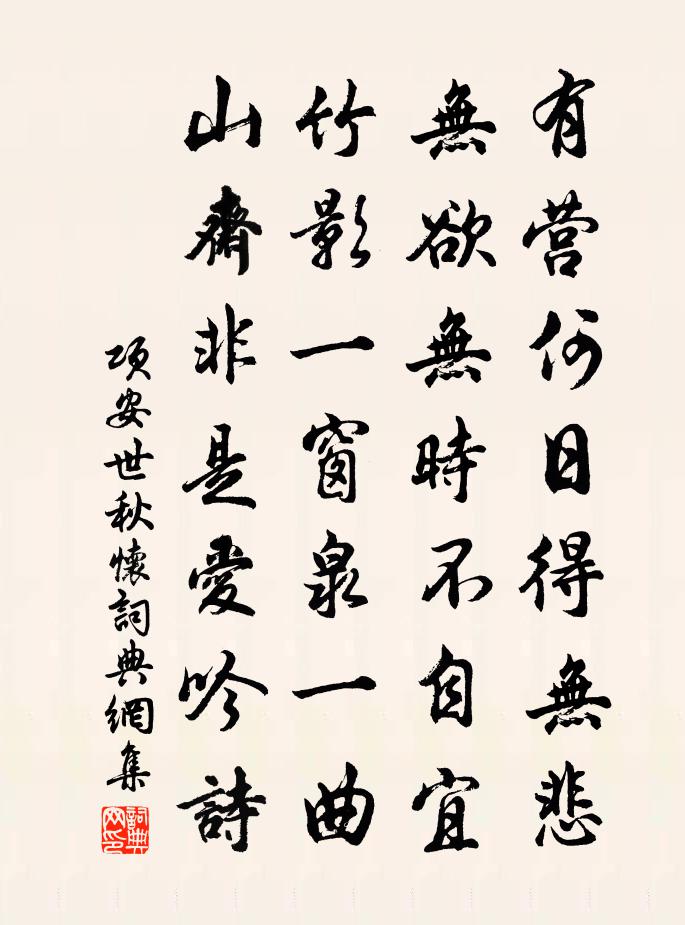 有营何日得無悲
無欲無時不自宜
竹影一窗泉一曲
山齋非是愛吟詩
項安世秋懷詞典網集
詞典网印